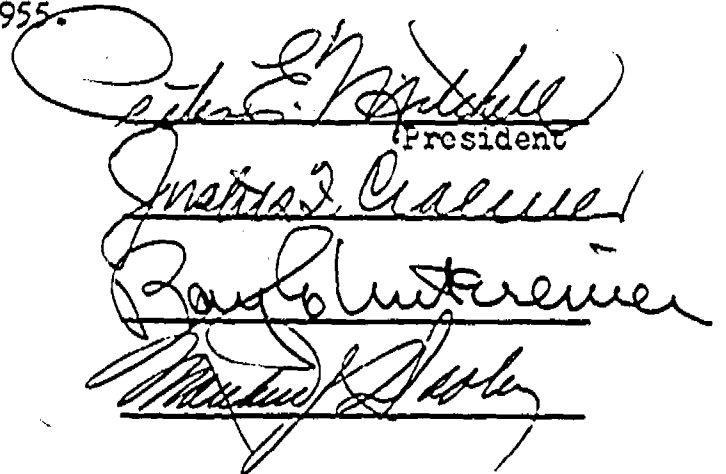 955.
Peter E. Mitchell
President
Justus F. Craemer
Ray E. Untereiner